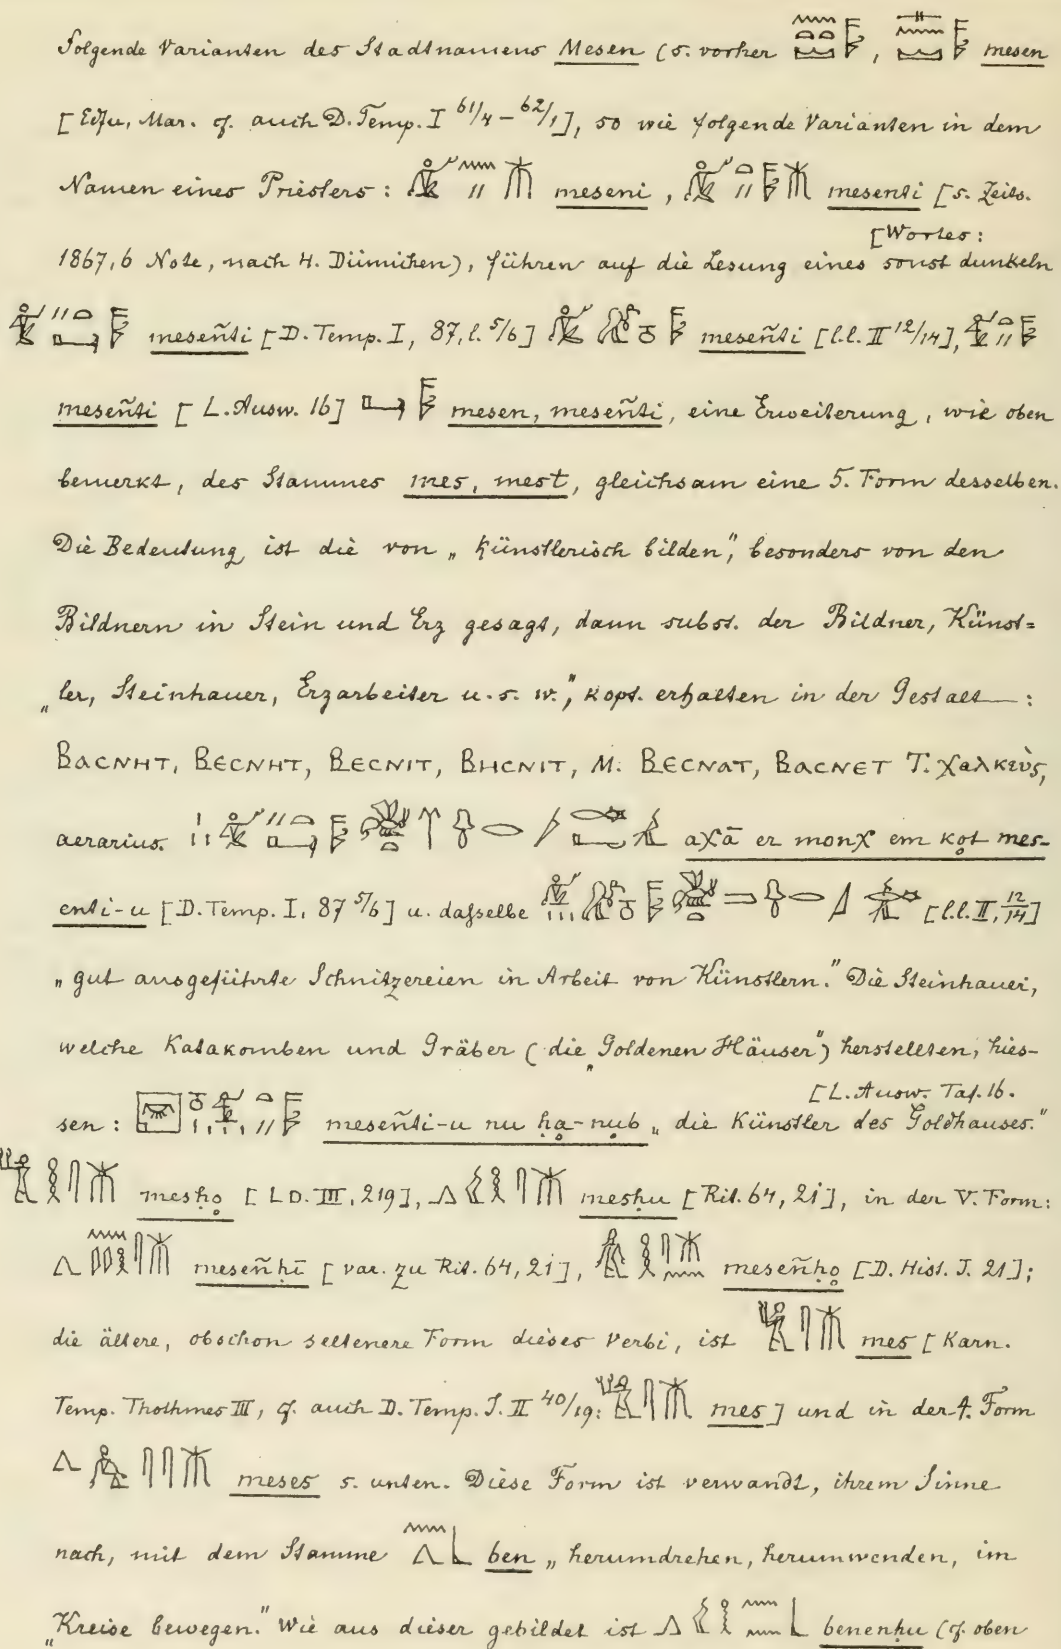 Folgende Varianten des Stadtnamens Mesen (s. vorher , mesen
[Edfu, Mar. cf. auch D. Temp. I 61/4 – 62/1], so wie folgende Varianten in dem
Namen eines Priesters : meseni , mesenti [s. Zeits.
[Wortes :
1867, 6 Note, nach H. Dümichen), führen auf die Lesung eines sonst dunkeln
mesen̄ti [D. Temp. I, 87, l. 5/6] mesen̄ti [l.l. II 12/14],
mesen̄ti [L. Ausw. 16] mesen, mesen̄ti, eine Erweiterung, wie oben
bemerkt, des Stammes mes, mest, gleichsam eine 5. Form desselben.
Die Bedeutung ist die von „künstlerisch bilden“, besonders von den
Bildnern in Stein und Erz gesagt, dann subst. der Bildner, Künst=
„ler, Steinhauer, Erzarbeiter u. s. w.“, kopt. erhalten in der Gestalt :
ⲂⲀⲤⲚⲎⲦ, ⲂⲈⲤⲚⲎⲦ, ⲂⲈⲤⲚⲒⲦ, ⲂⲎⲤⲚⲒⲦ, M. ⲂⲈⲤⲚⲀⲦ, ⲂⲀⲤⲚⲈⲦ T. χαλκεὺς,
aerarius. aχā er monχ em ḳoṭ mes-
enti-u [D. Temp. I, 87 5/6] u. daſselbe [l.l. II, 12/14]
„gut ausgeführte Schnitzereien in Arbeit von Künstlern.“ Die Steinhauer,
welche Katakomben und Gräber (die „Goldenen Häuser“) herstellten, hies-
[L. Ausw. Taf. 16.
sen : mesen̄ti-u nu ḥa-nub „die Künstler des Goldhauses.“
mesḥo [LD. III, 219], mesḥu [Rit. 64, 21], in der V. Form :
mesen̄ḥī [var. zu Rit. 64, 21], mesen̄ḥo [D. Hist. I. 21];
die ältere, obschon seltenere Form dieses Verbi, ist mes [Karn.
Temp. Thothmes III, cf. auch D. Temp. I. II 40/19: mes] und in der 4. Form
meses s. unten. Diese Form ist verwandt, ihrem Sinne
nach, mit dem Stamme ben „herumdrehen, herumwenden, im
„Kreise bewegen.“ Wie aus dieser gebildet ist benenḥu (cf. oben